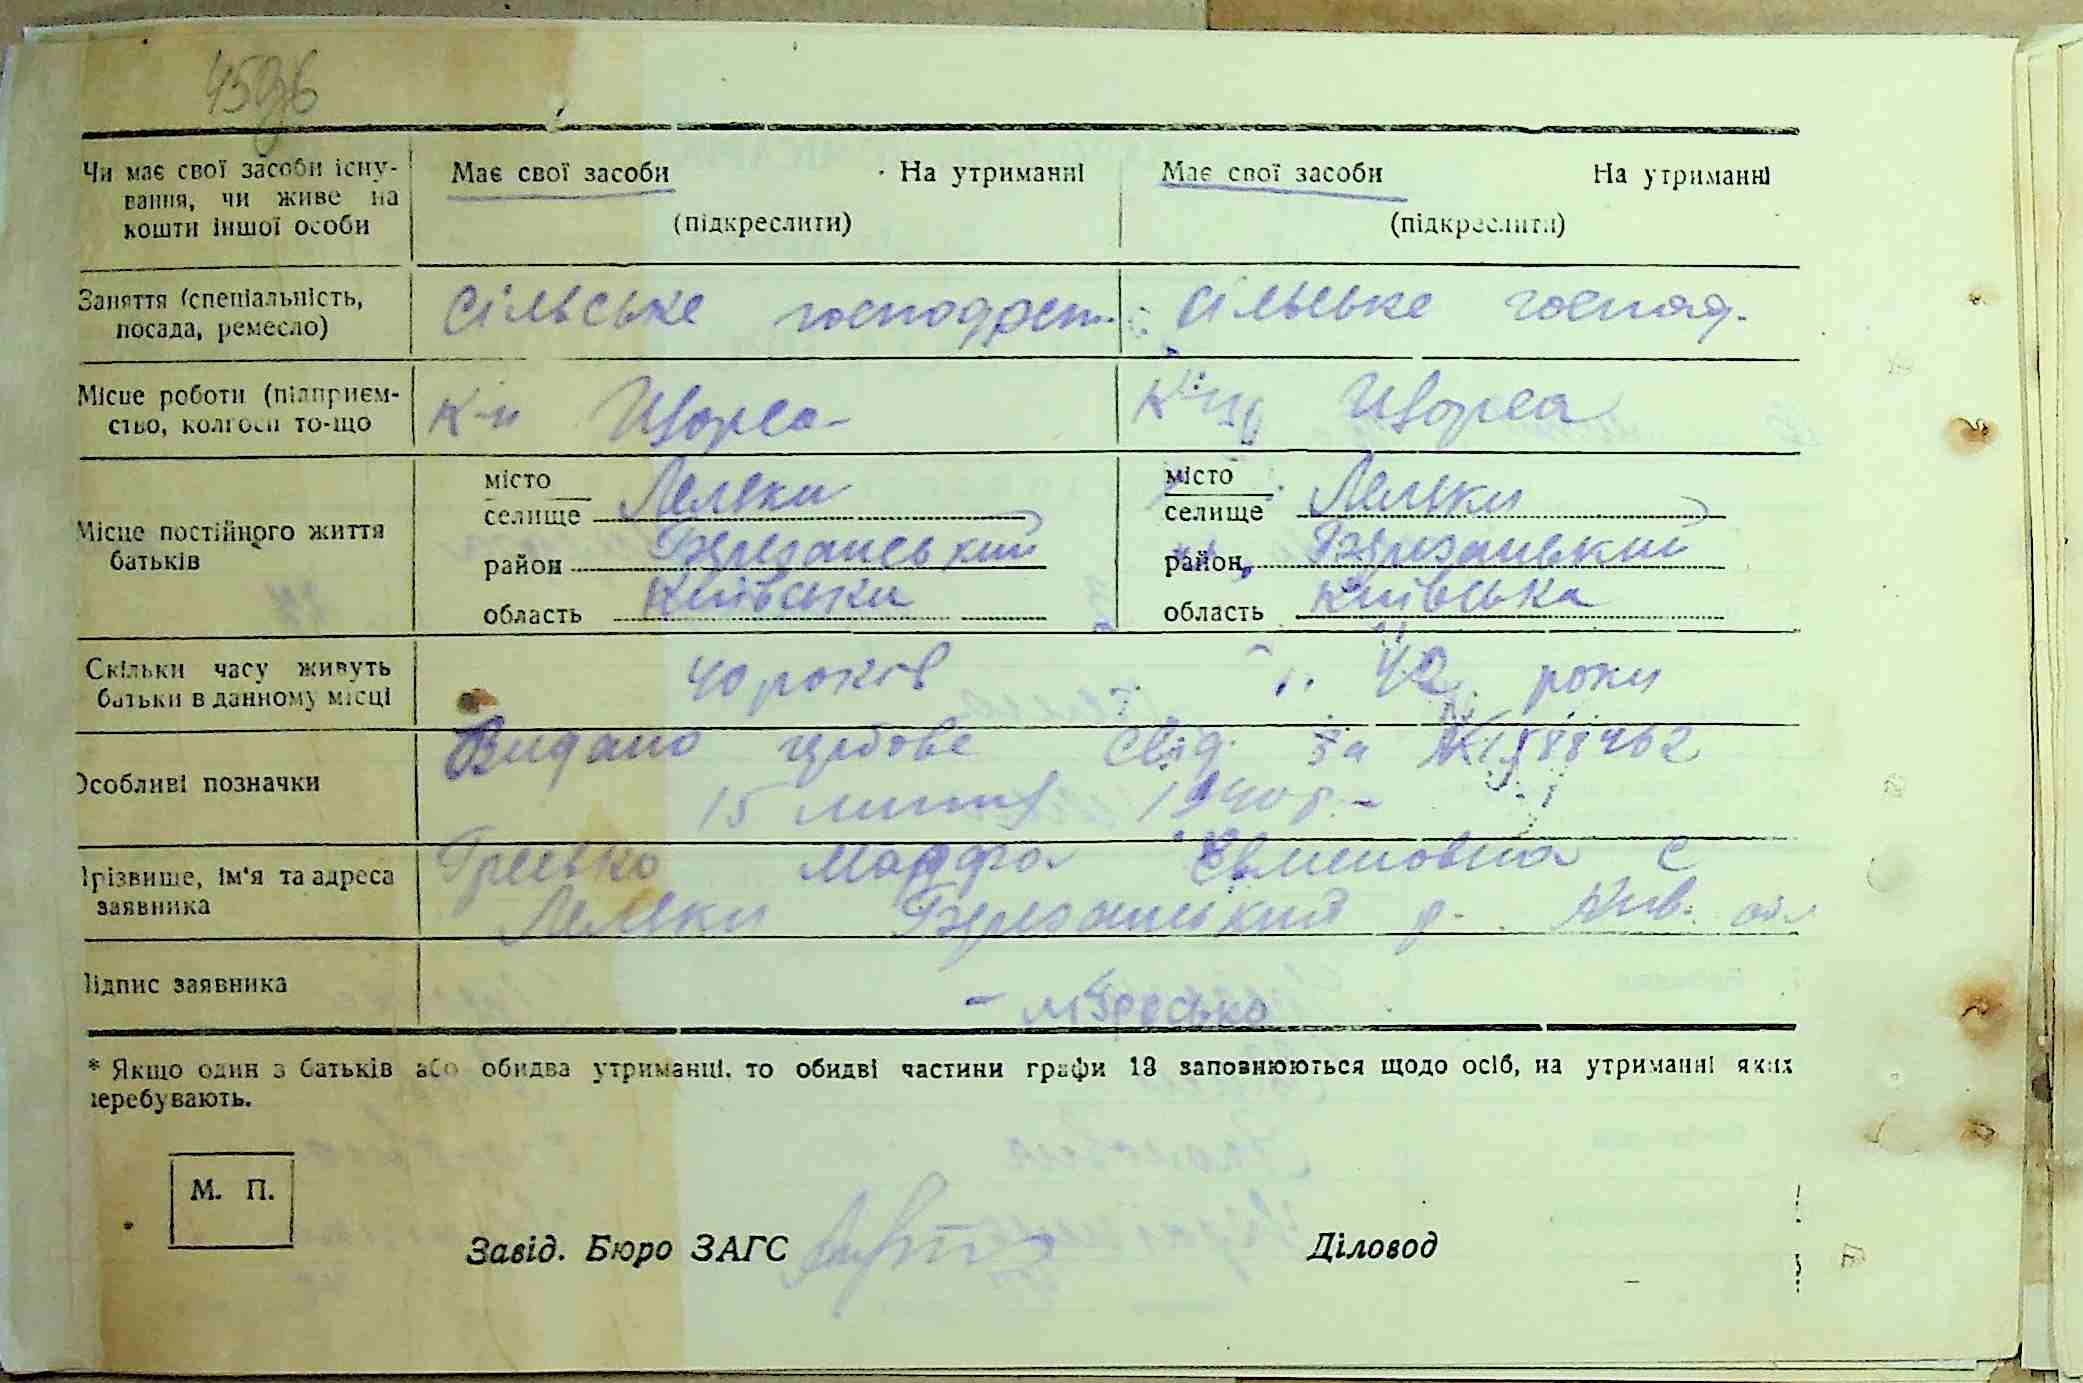 45зв
Чи має свої засоби існу-
вання, чи живе на
кошти іншої особи
Має свої засоби На утриманні
(підкреслити)
Має свої засоби На утриманні
(підкреслити)
Заняття (спеціальність,
посада, ремесло)
Сільське господрст.
Сільське господ.
Місце роботи (підприєм-
ство, колгосп то-що
К-п Щорса
Щорса
Місце постійного життя
батьків
місто
селище Лелеки
район Березанський
область Київська
місто
селище Лелеки
район Березанський
область Київська
Скільки часу живуть
батьки в данному місці
40 років
42 роки
Особливі позначки
Видано гербове свід. за №1588462
15 лютого 1940 р.
Прізвище, ім'я та адреса
заявника
Гресько Марфа Євменовна с
Лелеки Березанський р. Київ. обл
Підпис заявника
- МГресько
* Якщо один з батьків або обидва утриманці, то обидві частини графи 13 заповнюються щодо осіб, на утриманні яких
перебувають.
М. П.
Завід. Бюро ЗАГС
Діловод